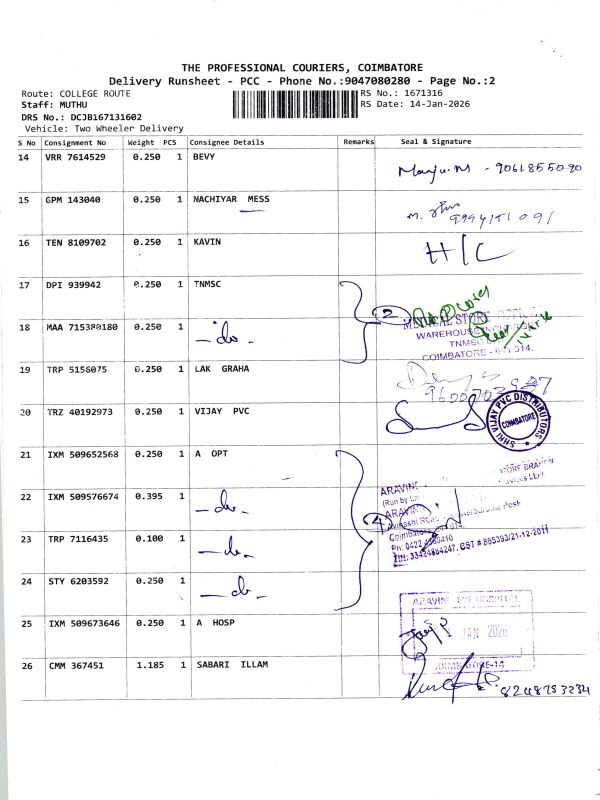 THE PROFESSIONAL COURIERS, COIMBATORE
Delivery Runsheet - PCC - Phone No.:9047080280 - Page No.:2
Route: COLLEGE ROUTE
Staff: MUTHU
DRS No.: DCJB167131602
Vehicle: Two Wheeler Delivery
RS No.: 1671316
RS Date: 14-Jan-2026
S No Consignment No Weight PCS Consignee Details Remarks Seal & Signature
14 VRR 7614529 0.250 1 BEVY Manju.M - 9061855090
15 GPM 143040 0.250 1 NACHIYAR MESS
16 TEN 8109702 0.250 1 KAVIN H/C
17 DPI 939942 0.250 1 TNMSC 2
MEDICAL STORE OFFICER
WAREHOUSE INCHARGE
TNMSC
COIMBATORE - 641 014.
18 MAA 715380180 0.250 1 -do-
19 TRP 5156075 0.250 1 LAK GRAHA
20 TRZ 40192973 0.250 1 VIJAY PVC
SHRI VIJAY PVC DISTRIBUTORS
COIMBATORE
21 IXM 509652568 0.250 1 A OPT
22 IXM 509576674 0.395 1 -do-
4
23 TRP 7116435 0.100 1 -do-
24 STY 6203592 0.250 1 -do-
25 IXM 509673646 0.250 1 A HOSP
JAN 2026
COIMBATORE-14
26 CMM 367451 1.185 1 SABARI ILLAM 8248753234